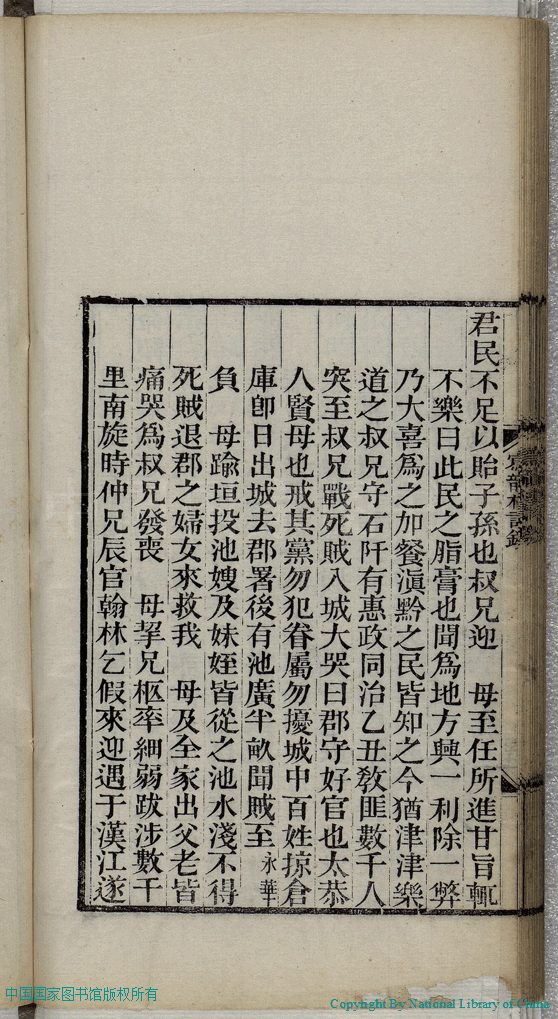 君民不足以貽子孫也叔兄迎　母至任所進甘旨輒
不樂曰此民之脂膏也聞爲地方興一利除一弊
乃大喜爲之加餐滇黔之民皆知之今猶津津樂
道之叔兄守石阡有惠政同治乙丑敎匪數千人
突至叔兄戰死賊入城大哭曰郡守好官也太恭
人賢母也戒其黨勿犯眷屬勿擾城中百姓掠倉
庫卽日出城去郡署後有池廣半畝聞賊至永華
負　母踰垣投池嫂及妹姪皆從之池水淺不得
死賊退郡之婦女來救我　母及全家出父老皆
痛哭爲叔兄發喪　母挈兄柩率細弱跋涉數千
里南旋時仲兄辰官翰林乞假來迎遇于漢江遂
中国国家图书馆版权所有
Copyright By National Library of China